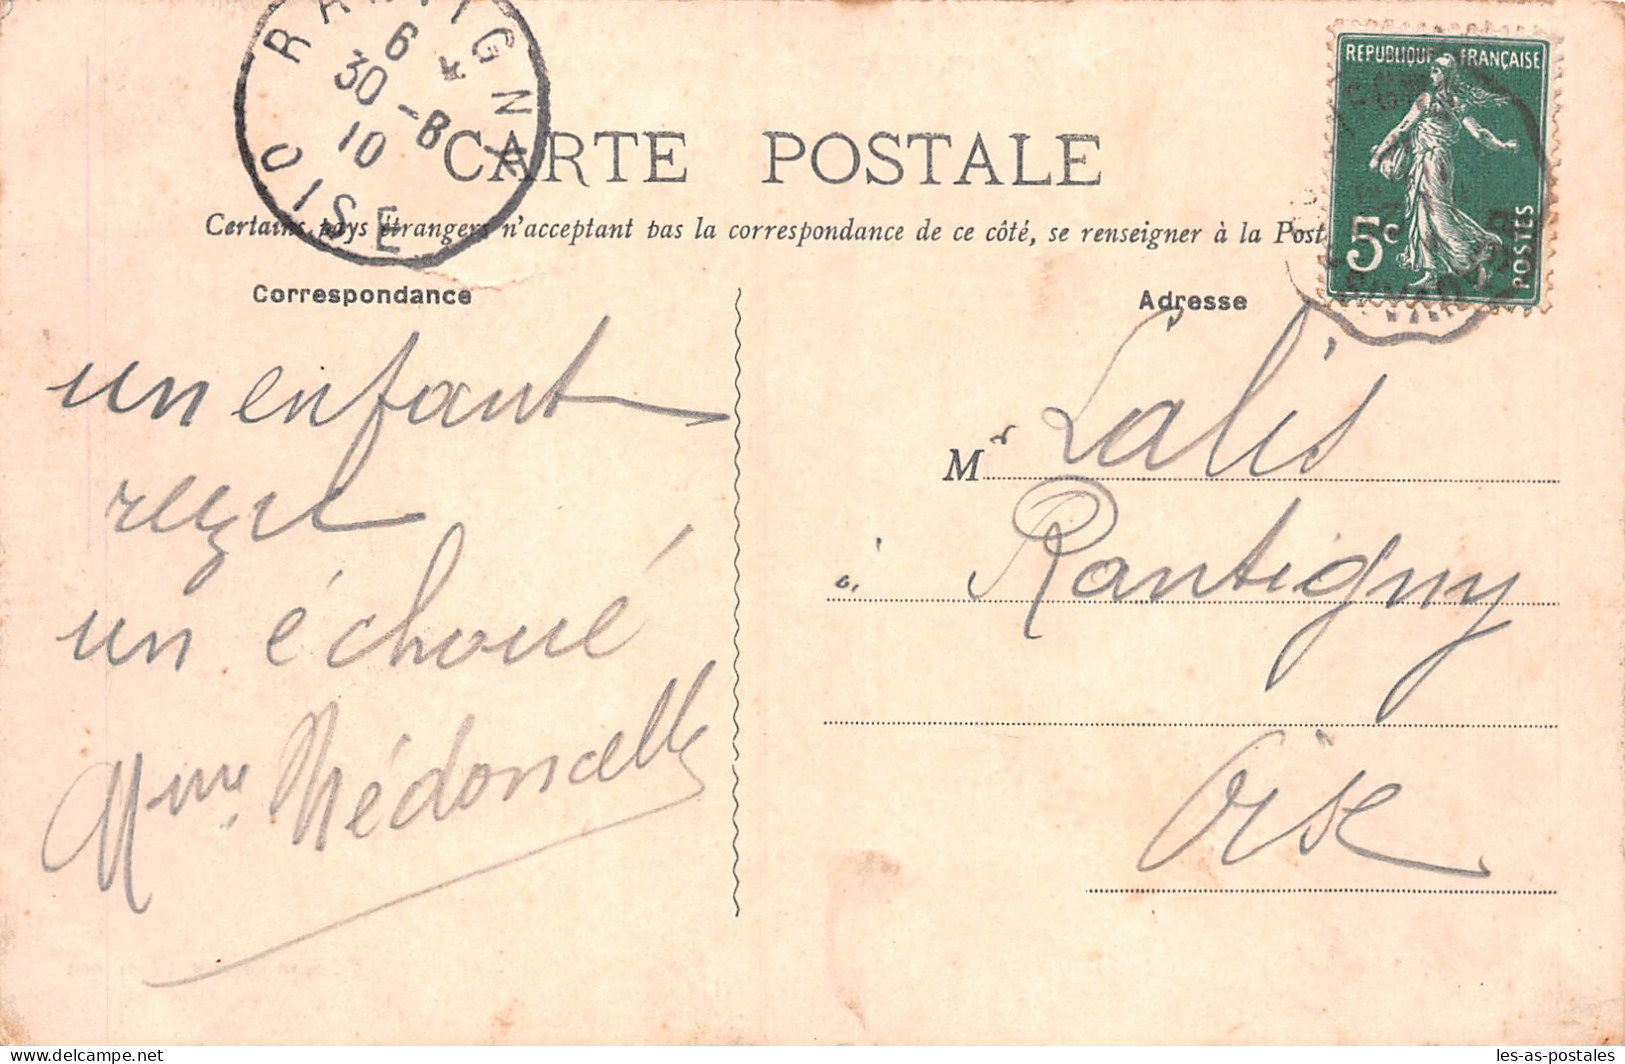 RANTIGNY
6 *
30 -8
10
OISE
REPUBLIQUE FRANÇAISE
5c
POSTES
CARTE POSTALE
Certains pays étrangers n'acceptant pas la correspondance de ce côté, se renseigner à la Post
Correspondance
Adresse
un enfant
reçu
un échoué
Mme Nédoncelle
Mr Lalis
à Rantigny
Oise
les-as-postales
delcampe.net